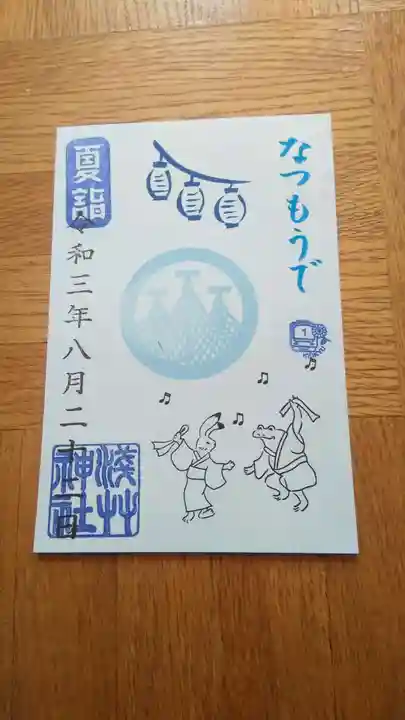 なつもうで
1
夏詣
令和三年八月二十一日
浅草神社